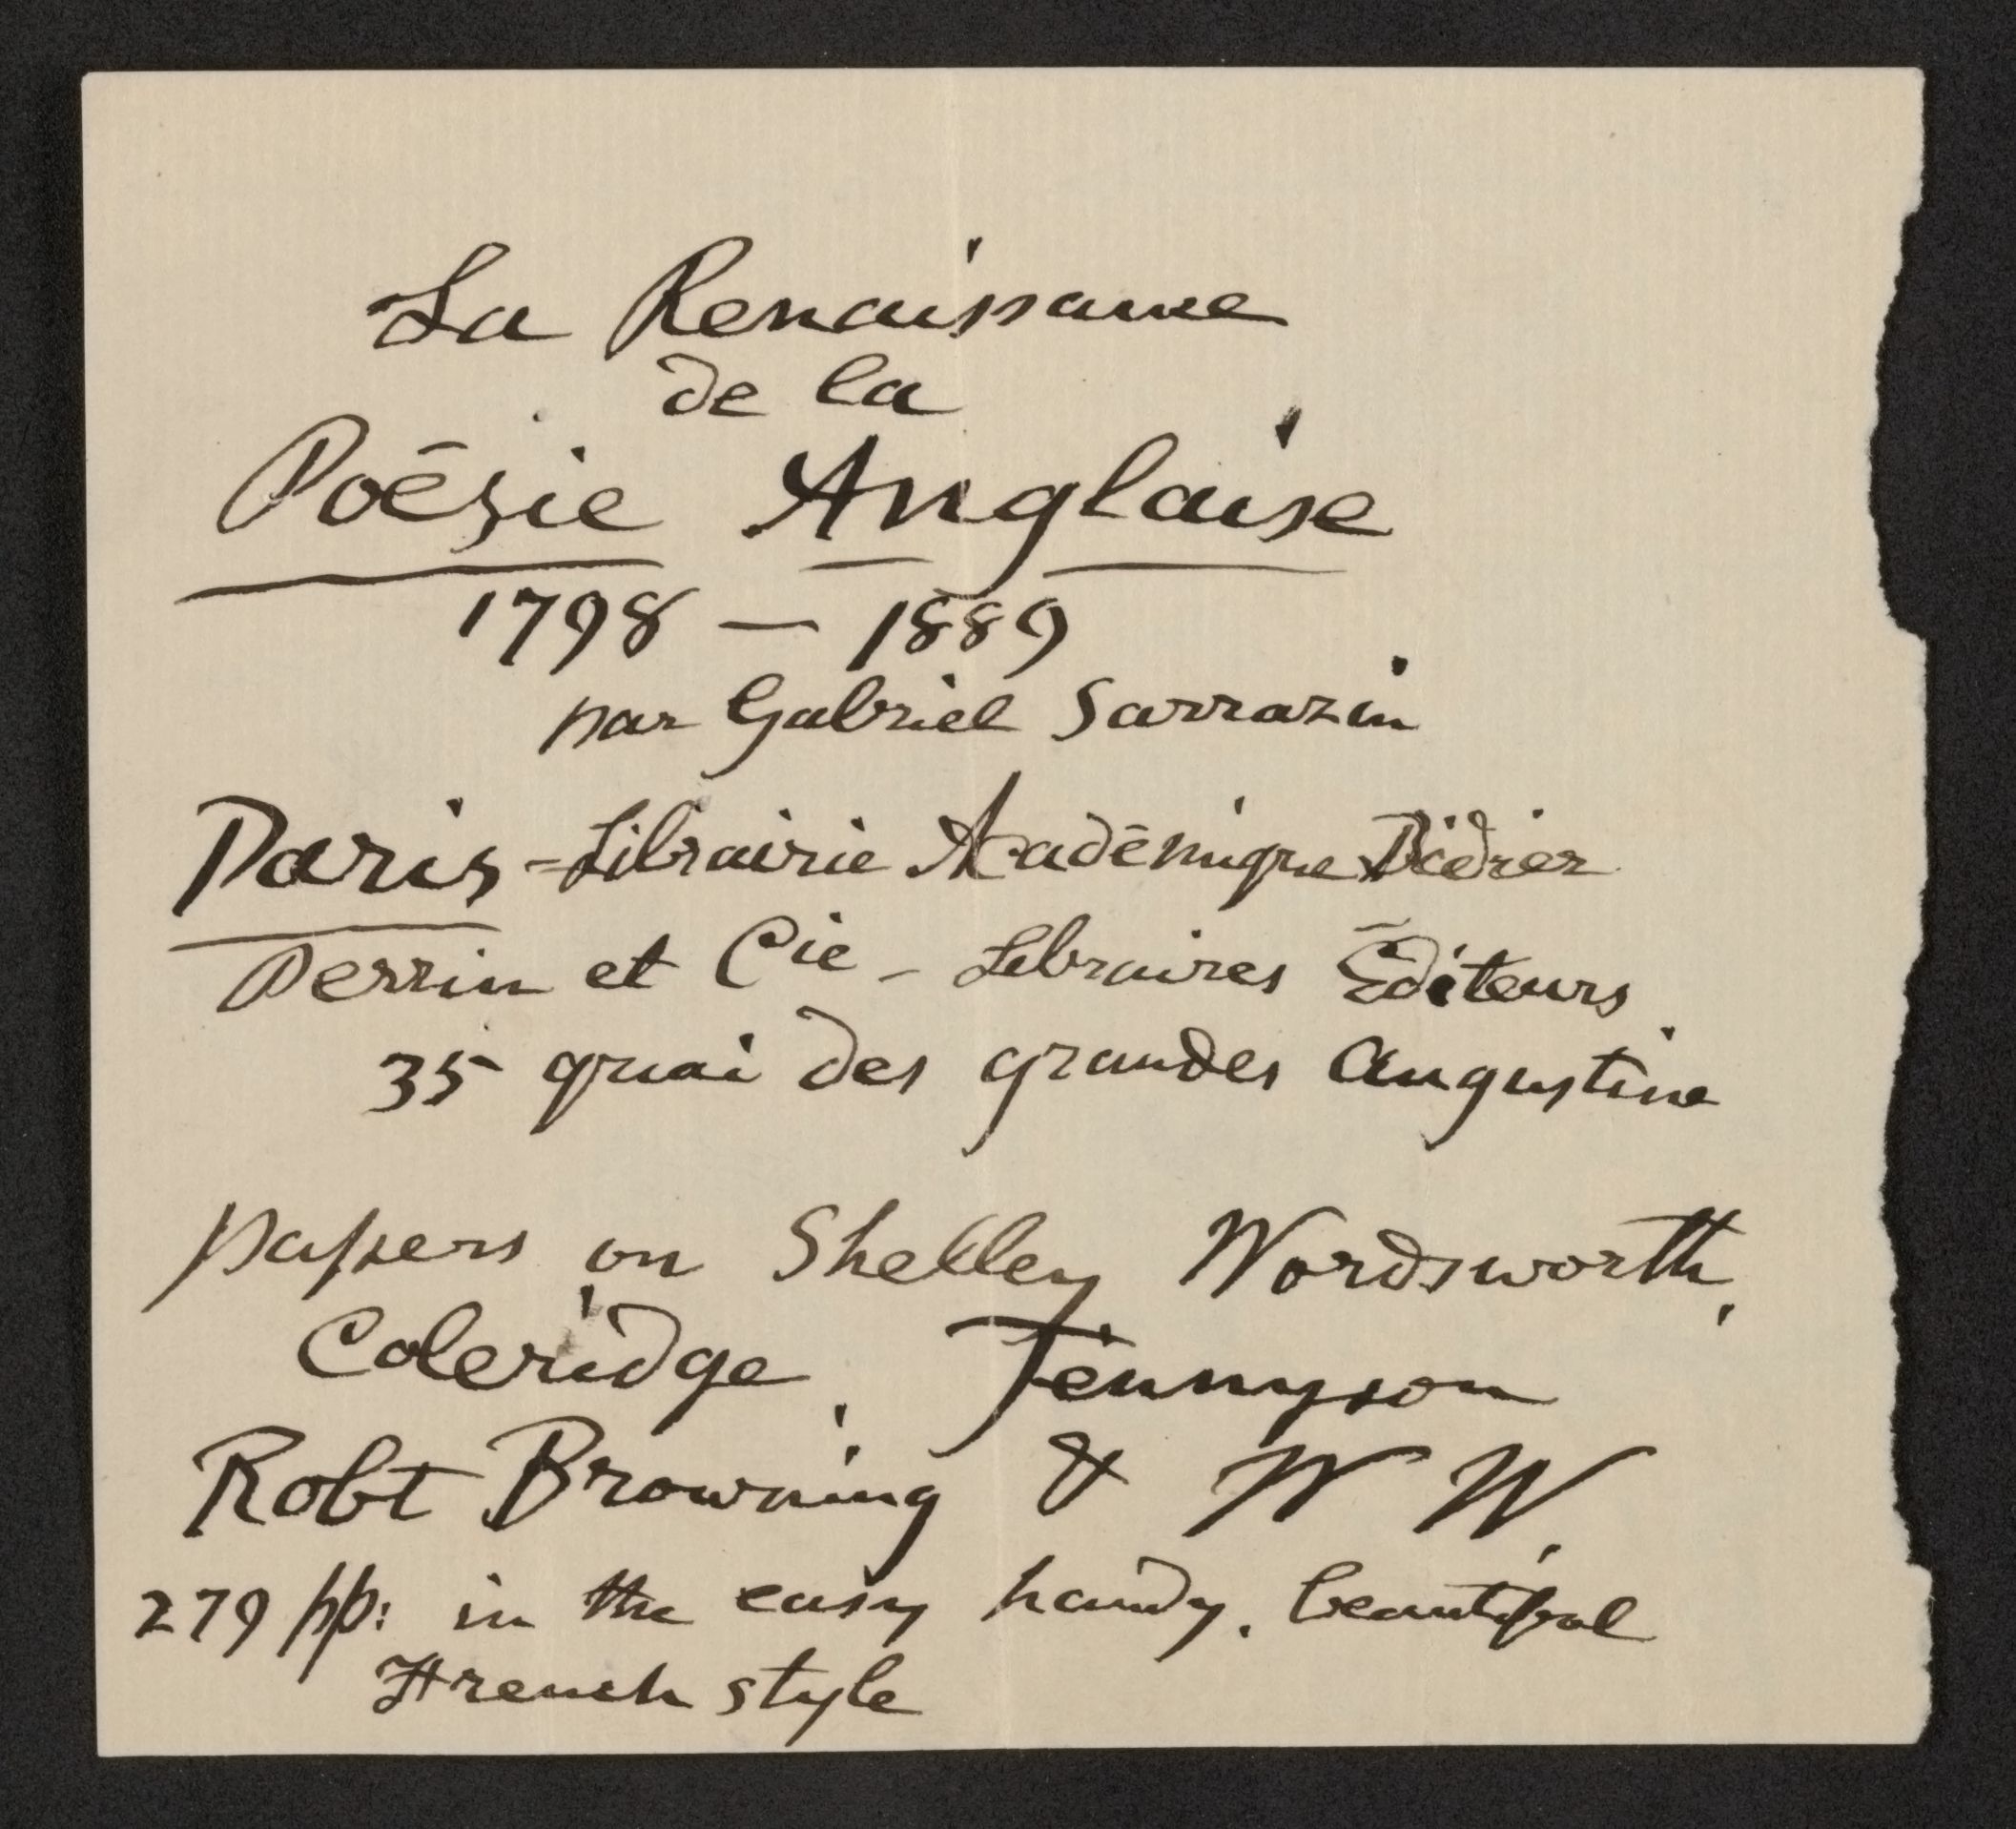 La Renaissance
de la
Poésie Anglaise
1798 — 1889
par Gabriel Sarrazin
Paris - Librairie Académique Didier
Perrin et Cie - Libraires Éditeurs
35 quai des grandes Augustine
papers on Shelley Wordsworth,
Coleridge, Tennyson
Robt Browning & W W.
279 pp: in the easy handy, beautiful
French style